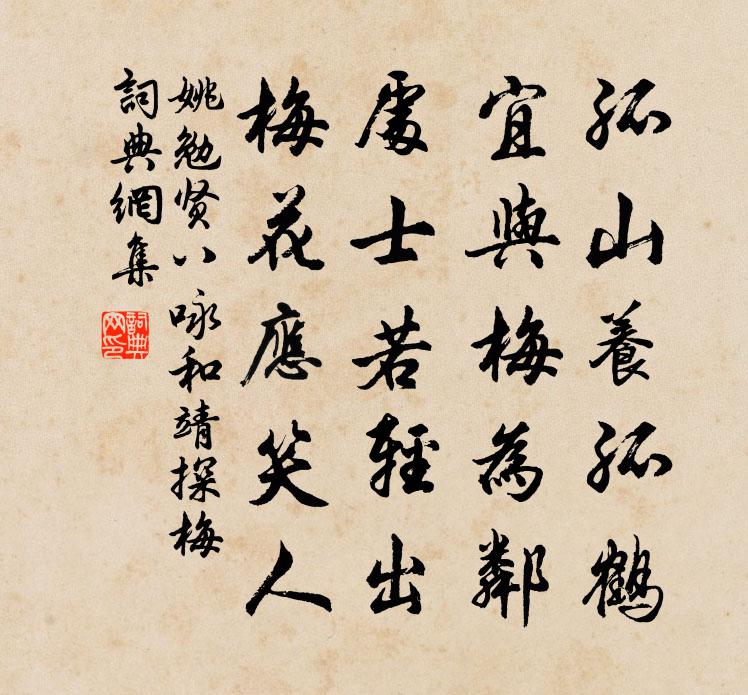 孤山養孤鶴
宜與梅為鄰
處士若輕出
梅花應笑人
姚勉贤八咏和靖探梅
詞典網集
詞典
网印